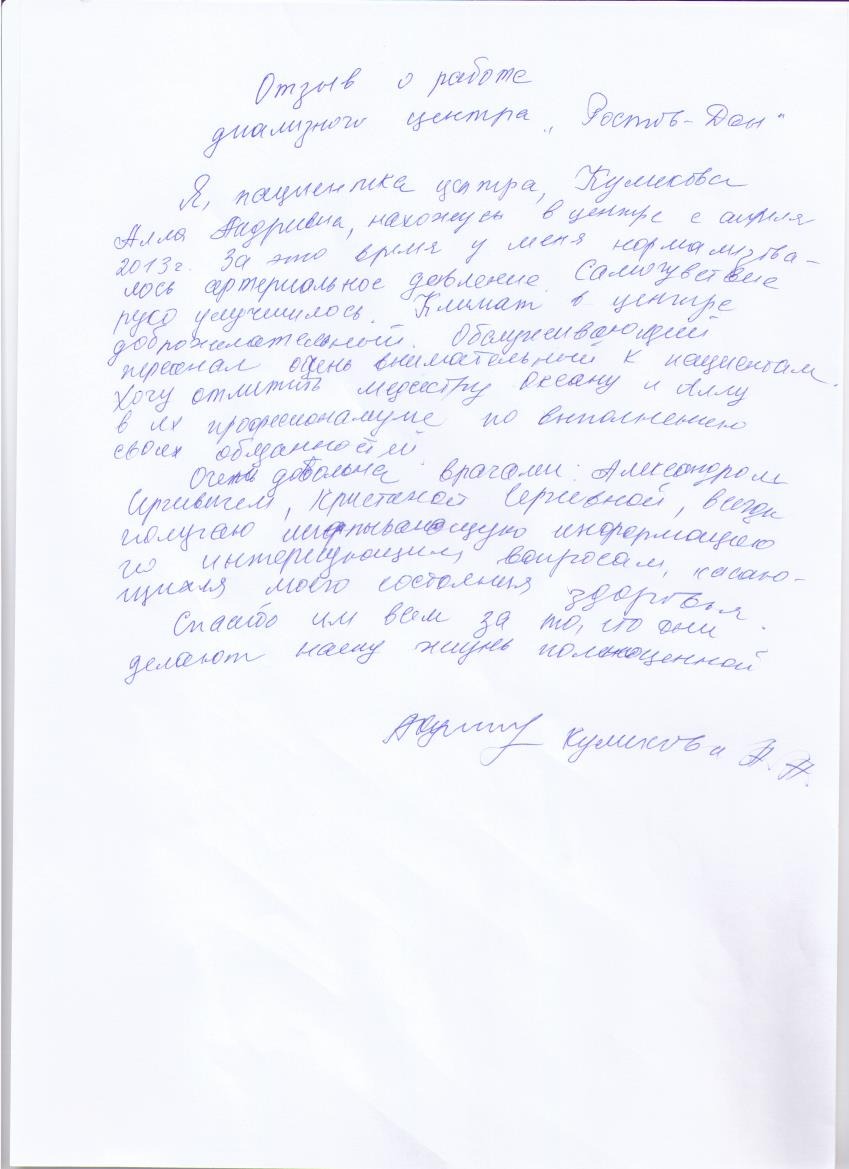 Отзыв о работе
диализного центра „Ростов-Дон"
Я, пациентка центра, Куликова
Алла Андривна, нахожусь в центре с апреля
2013г. За это время у меня нормализова-
лось артериальное давление. Самочувствие
резко улучшилось. Климат в центре
доброжелательный. Обслуживающий
персонал очень внимательный к пациентам.
Хочу отметить медсестру Оксану и Аллу
в их профессионализме по выполнению
своих обязанностей.
Очень довольна врачами: Александром
Сергивичем, Кристиной Сергивной, всегда
получаю исчерпывающую информацию
по интересующим вопросам, касаю-
щихся моего состояния здоровья.
Спасибо им всем за то, что они
делают нашу жизнь полноценной
Куликова А. А.